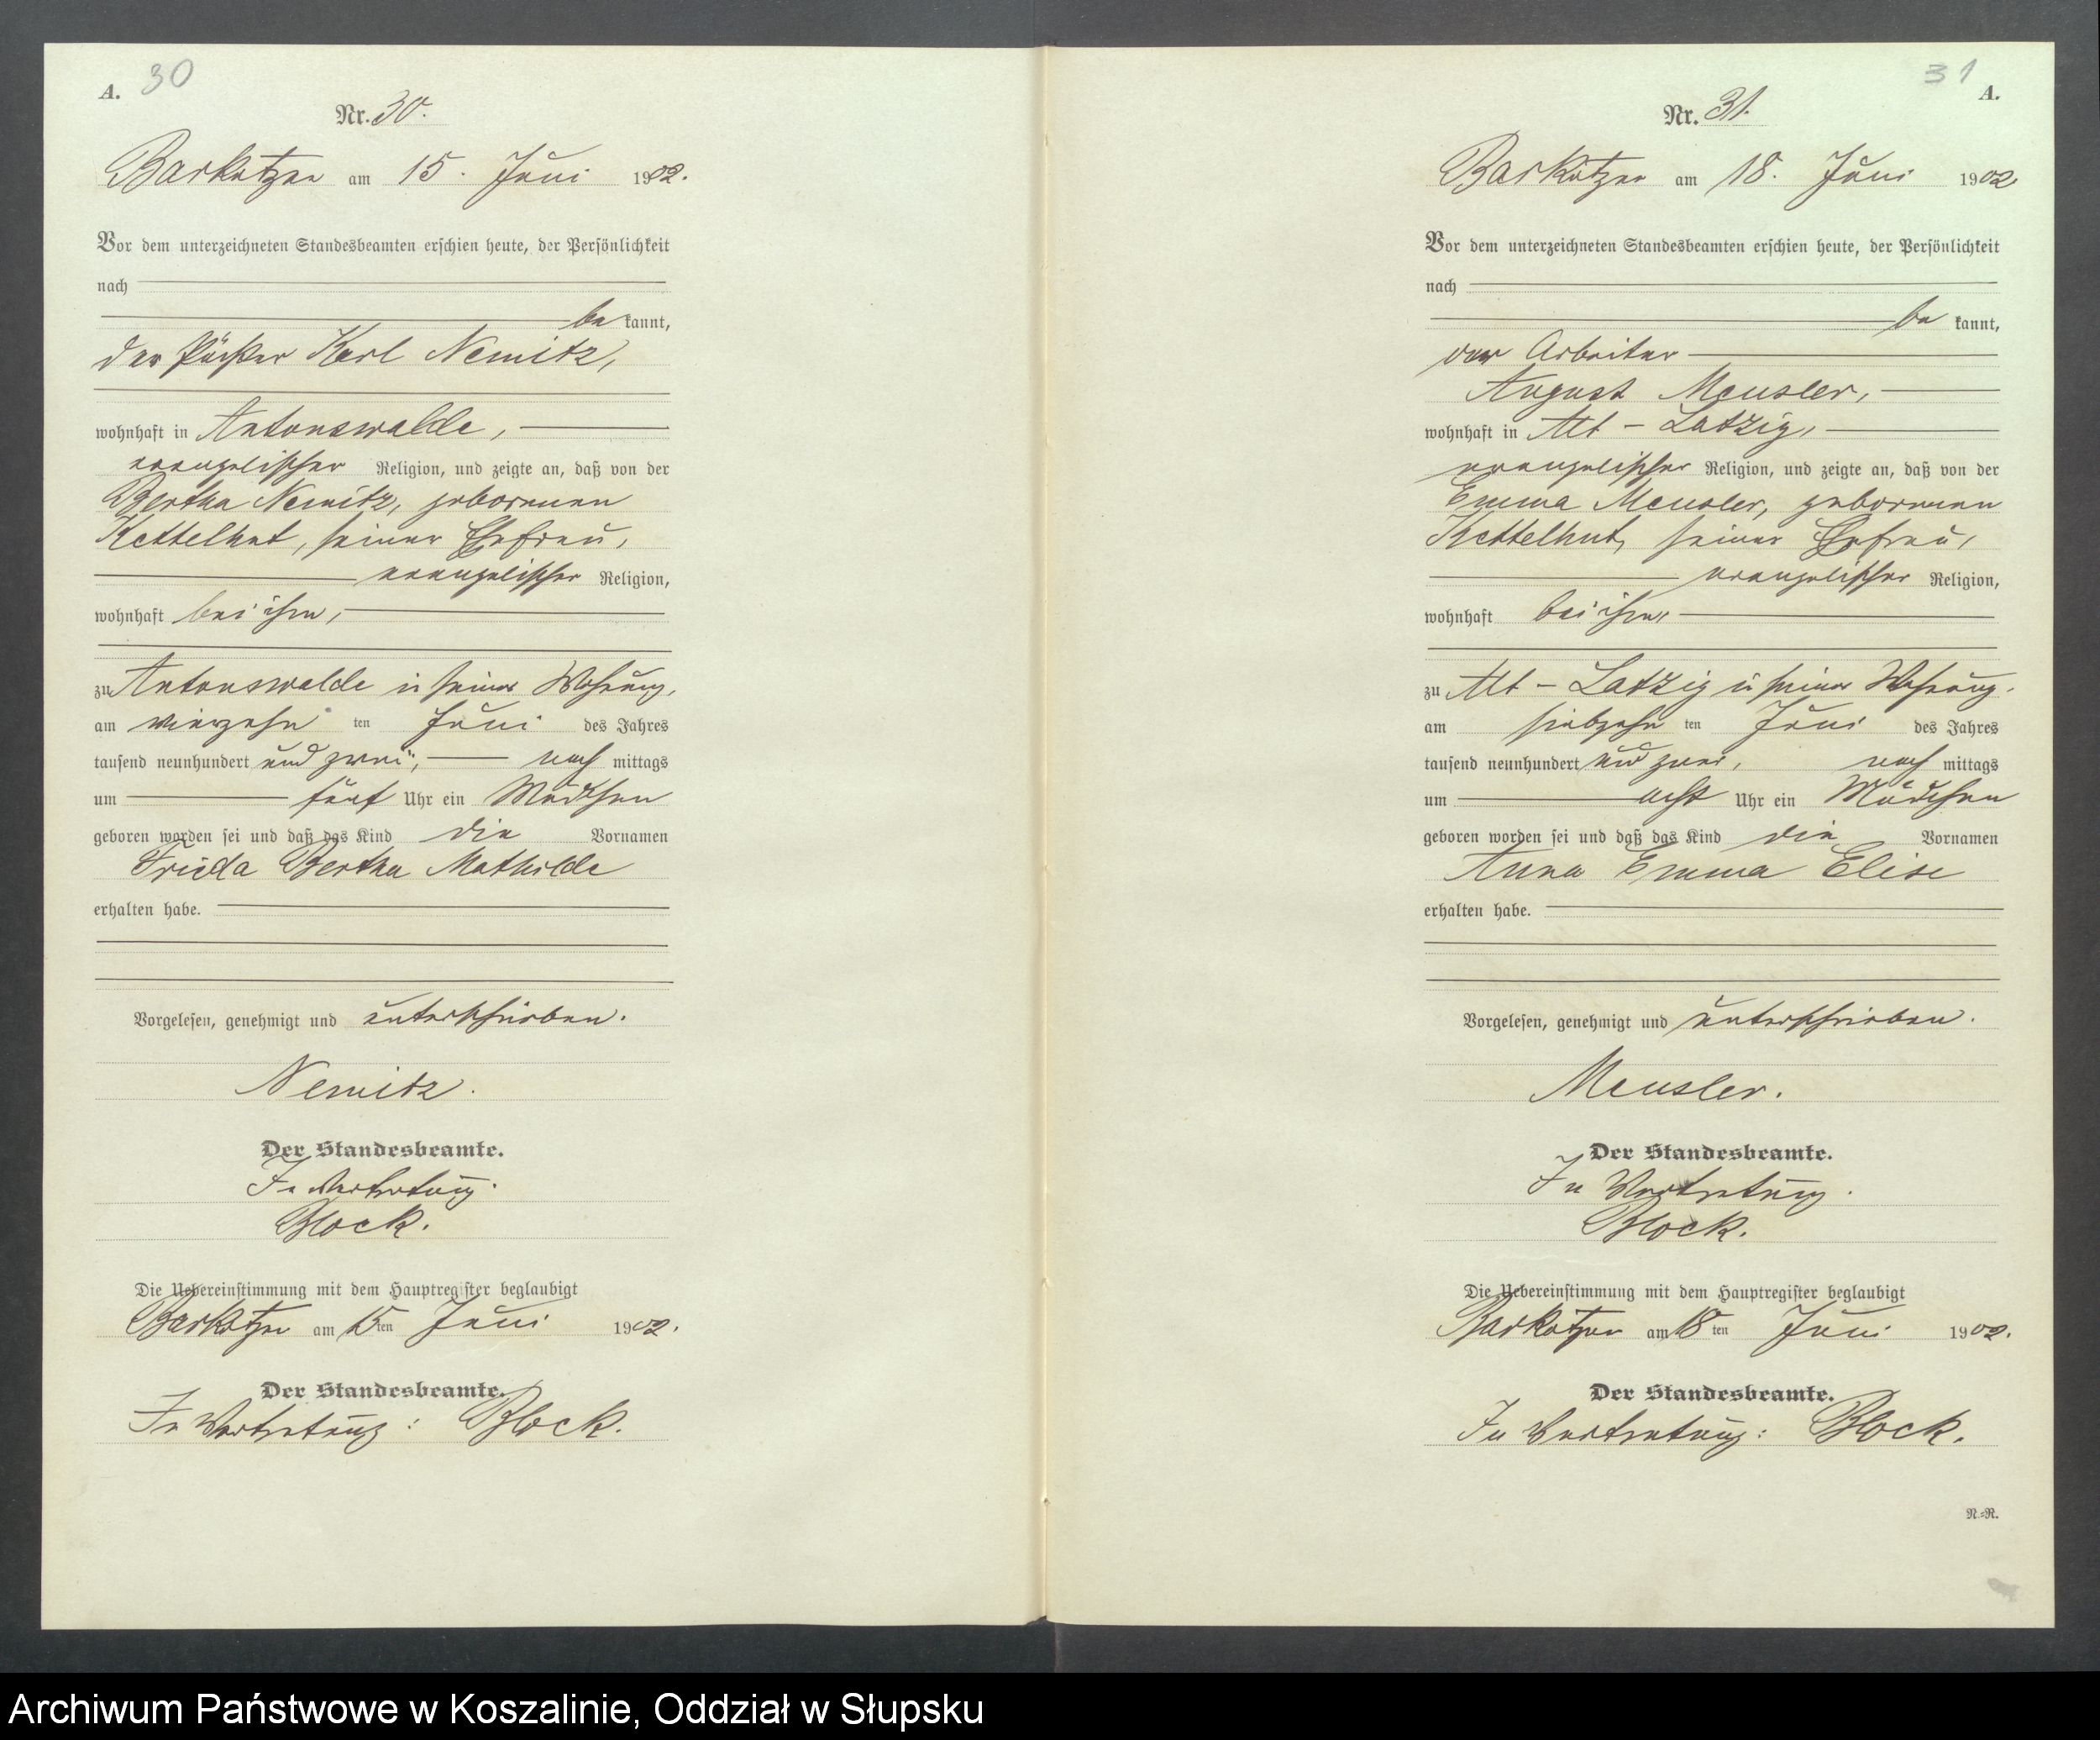 A. 30
Nr. 30.
Barkotzen am 15. Juni 1902.
Vor dem unterzeichneten Standesbeamten erschien heute, der Persönlichkeit
nach
be kannt,
der Pächter Karl Nemitz,
wohnhaft in Antonswalde,
evangelischer Religion, und zeigte an, daß von der
Bertha Nemitz, geborenen
Kettelhut, seiner Ehefrau,
evangelischer Religion,
wohnhaft bei ihm,
zu Antonswalde in seiner Wohnung,
am vierzehn ten Juni des Jahres
tausend neunhundert und zwei, nach mittags
um fünf Uhr ein Mädchen
geboren worden sei und daß das Kind die Vornamen
Frieda Bertha Mathilde
erhalten habe.
Vorgelesen, genehmigt und unterschrieben.
Nemitz.
Der Standesbeamte.
In Vertretung.
Block.
Die Uebereinstimmung mit dem Hauptregister beglaubigt
Barkotzen am 15ten Juni 1902.
Der Standesbeamte.
In Vertretung: Block.
31 A.
Nr. 31.
Barkotzen am 18. Juni 1902
Vor dem unterzeichneten Standesbeamten erschien heute, der Persönlichkeit
nach
be kannt,
der Arbeiter
August Meusler,
wohnhaft in Alt-Latzig,
evangelischer Religion, und zeigte an, daß von der
Emma Meusler, geborenen
Kettelhut, seiner Ehefrau,
evangelischer Religion,
wohnhaft bei ihm,
zu Alt-Latzig in seiner Wohnung.
am siebzehn ten Juni des Jahres
tausend neunhundert und zwei, nach mittags
um acht Uhr ein Mädchen
geboren worden sei und daß das Kind die Vornamen
Anna Emma Elise
erhalten habe.
Vorgelesen, genehmigt und unterschrieben.
Meusler.
Der Standesbeamte.
In Vertretung.
Block.
Die Uebereinstimmung mit dem Hauptregister beglaubigt
Barkotzen am 18 ten Juni 1902.
Der Standesbeamte.
In Vertretung: Block.
N.=R.
Archiwum Państwowe w Koszalinie, Oddział w Słupsku